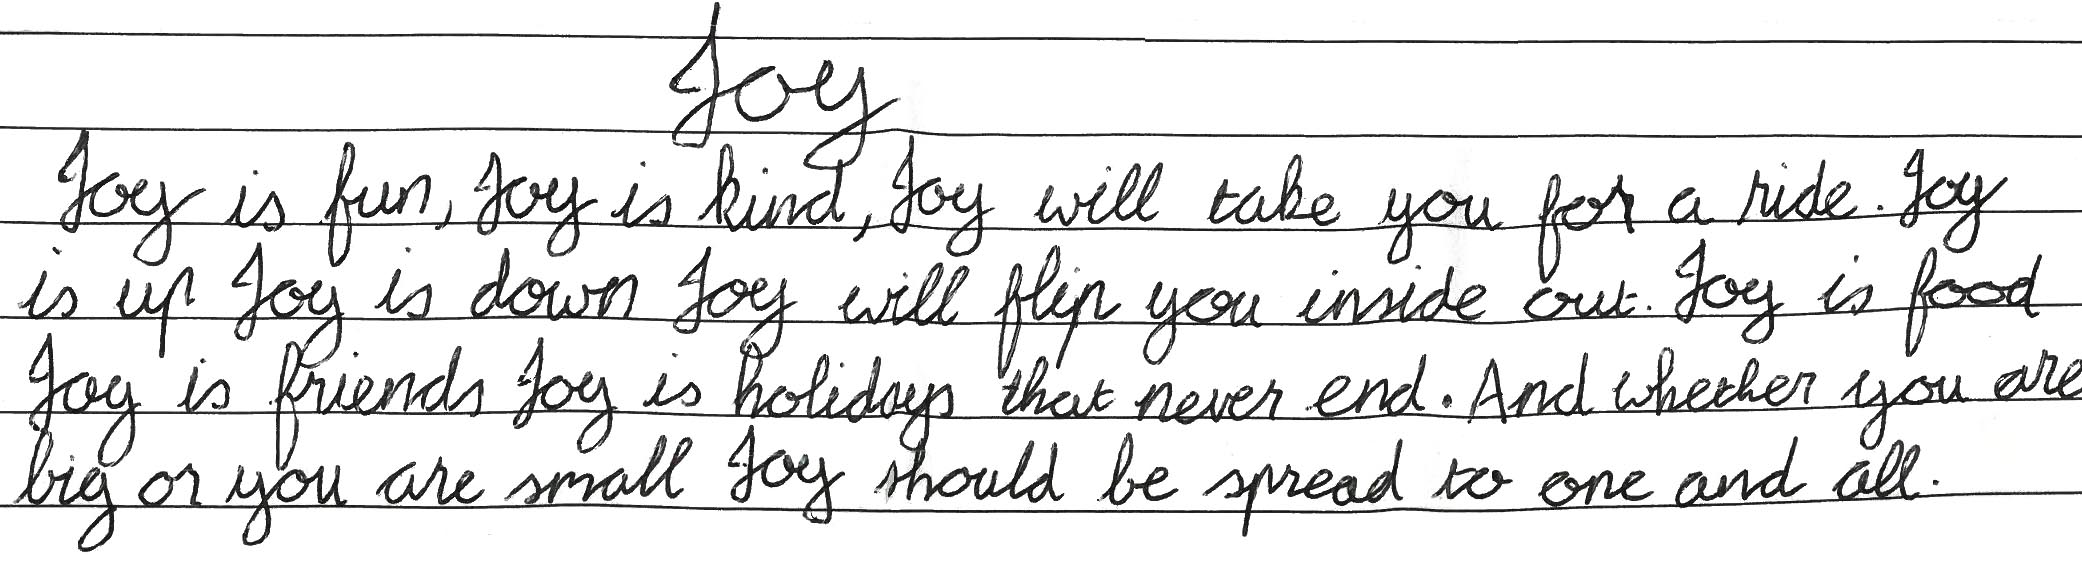 Joy
Joy is fun, Joy is kind, Joy will take you for a ride. Joy
is up Joy is down Joy will flip you inside out. Joy is food
Joy is friends Joy is holidays that never end. And whether you are
big or you are small Joy should be spread to one and all.